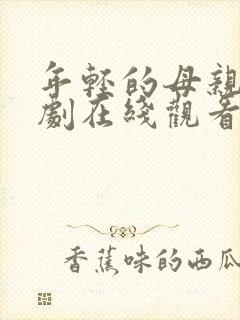 年輕的母親
劇在綫觀看
香蕉味的西瓜